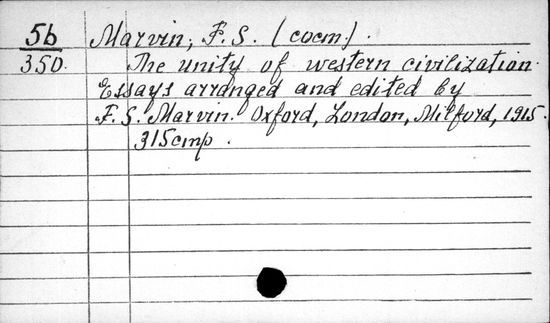 56 Marvin, F. S. (сост.).
350. The unity of western civilization.
Essays arranged and edited by
F. S. Marvin. Oxford, London, Milford, 1915.
315 стр.